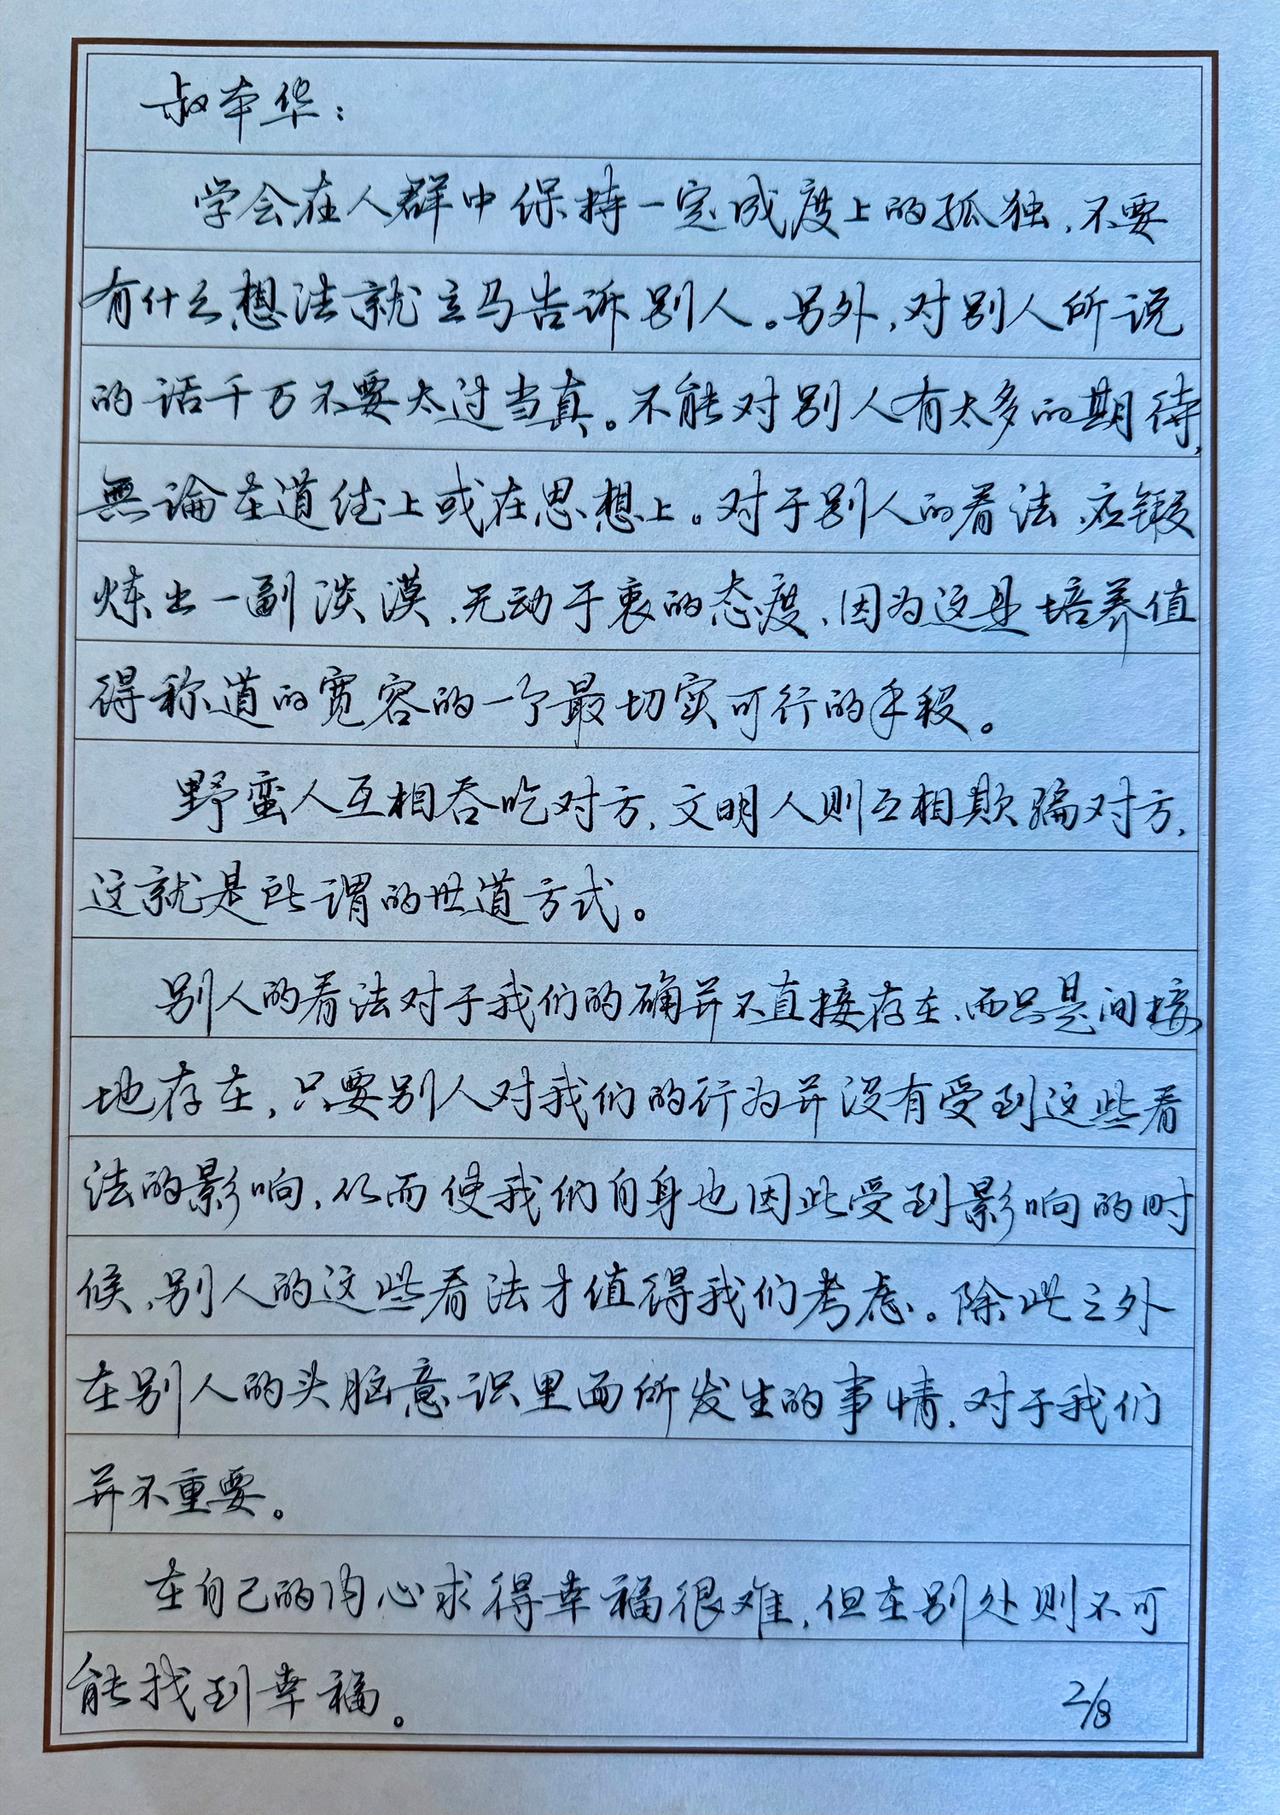 叔本华：
学会在人群中保持一定成度上的孤独，不要
有什么想法就立马告诉别人。另外，对别人所说
的话千万不要太过当真。不能对别人有太多的期待，
無論在道德上或在思想上。对于别人的看法，应锻
炼出一副淡漠，无动于衷的态度，因为这是培养值
得称道的宽容的一个最切实可行的手段。
野蛮人互相吞吃对方，文明人则互相欺骗对方，
这就是所谓的世道方式。
别人的看法对于我们的确并不直接存在，而只是间接
地存在，只要别人对我们的行为并没有受到这些看
法的影响，从而使我们自身也因此受到影响的时
候，别人的这些看法才值得我们考虑。除此之外
在别人的头脑意识里面所发生的事情，对于我们
并不重要。
在自己的内心求得幸福很难，但在别处则不可
能找到幸福。
2/8